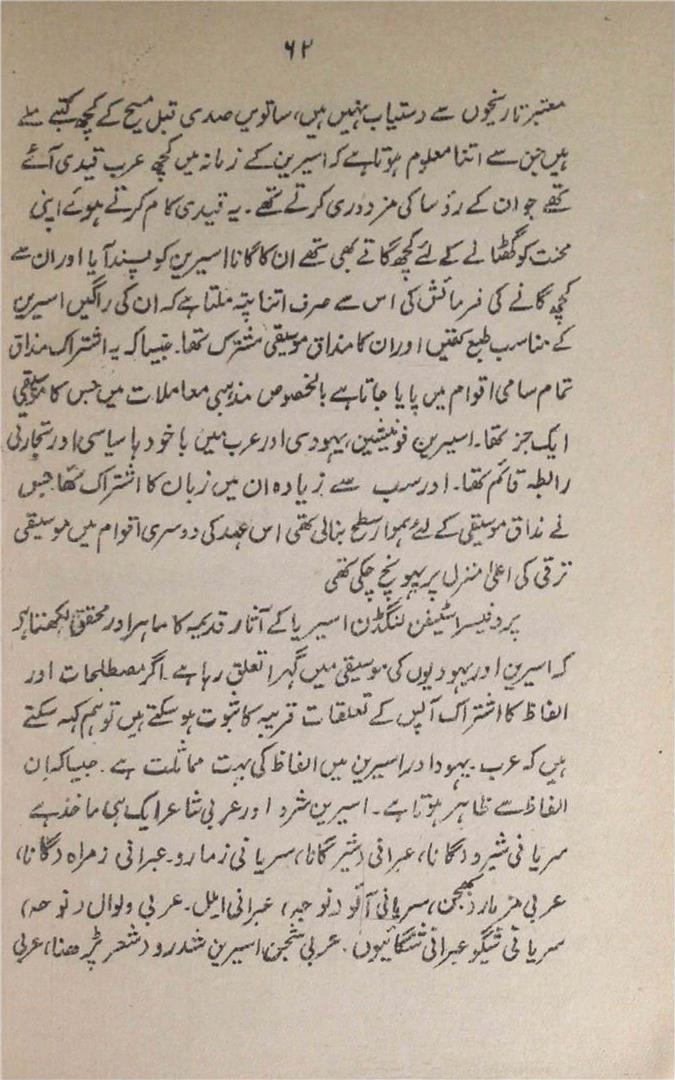 ۶۲
معتبر تاریخوں سے دستیاب نہیں ہیں، ساتویں صدی قبل مسیح کے کچھ کتبے ملے
ہیں جن سے اتنا معلوم ہوتا ہے کہ اسیرین کے زمانہ میں کچھ عرب قیدی آئے
تھے جو ان کے رؤسا کی مزدوری کرتے تھے۔ یہ قیدی کام کرتے ہوئے اپنی
محنت کو گھٹانے کے لئے کچھ گاتے بھی تھے ان کا گانا اسیرین کو پسند آیا اور ان سے
کچھ گانے کی فرمائش کی اس سے صرف اتنا پتہ ملتا ہے کہ ان کی راگیں اسیرین
کے مناسب طبع تھیں اور ان کا مذاق موسیقی مشترک تھا۔ جیسا کہ یہ اشتراک مذاق
تمام سامی اقوام میں پایا جاتا ہے بالخصوص مذہبی معاملات میں جس کا موسیقی
ایک جز تھا۔ اسیرین فونیشین یہودی اور عرب میں باخود ہا سیاسی اور تجارتی
رابطہ قائم تھا۔ اور سب سے زیادہ ان میں زبان کا اشتراک تھا جس
نے مذاق موسیقی کے لئے ہموار سطح بنالی تھی اس عہد کی دوسری اقوام میں موسیقی
ترقی کی اعلیٰ منزل پر پہونچ چکی تھی
پروفیسر اسٹیفن لنگڈن اسیریا کے آثار قدیمہ کا ماہر اور محقق لکھتا ہے
کہ اسیرین اور یہودیوں کی موسیقی میں گہرا تعلق رہا ہے۔ اگر مصطلحات اور
الفاظ کا اشتراک آپس کے تعلقات قریبہ کا ثبوت ہو سکتے ہیں تو ہم کہہ سکتے
ہیں کہ عرب۔ یہود اور اسیرین میں الفاظ کی بہت مماثلت ہے۔ جیسا کہ ان
الفاظ سے ظاہر ہوتا ہے۔ اسیرین شرو اور عربی شاعر ایک ہی ماخذ ہے
سریانی شیرو (گانا)، عبرانی (شیر گانا)، سریانی زمارو۔ عبرانی زمراہ (گانا)،
عربی مزمار (بھجن)، سریانی (نوحہ)، عبرانی ایلل۔ عربی ولوال (نوحہ)
سریانی شیگو عبرانی شگائیوں۔ عربی شجن، اسیرین شدرو (شعر پڑھنا)، عربی